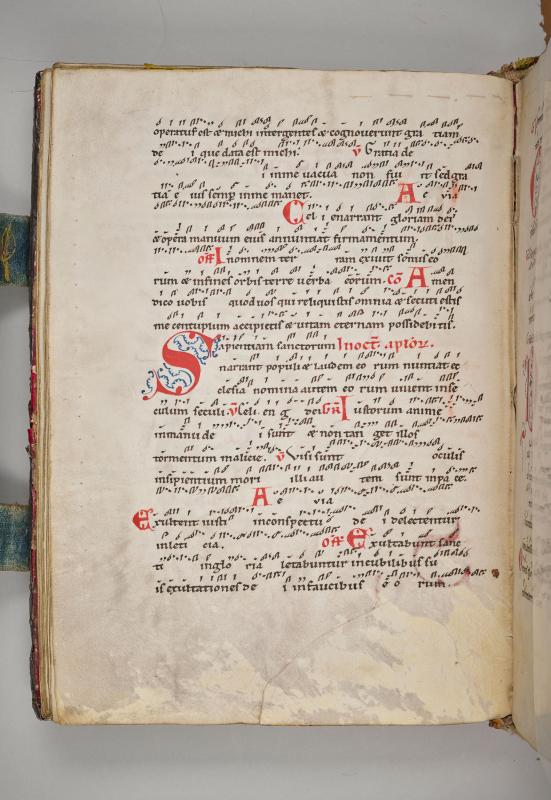 operatus est & michi inter gentes & cognoverunt gra tiam
de i que data est michi. v Gratia de
i in me vacua non fu it sed gra
tia e ius semp in me manet. A e via
Cel i enarrant gloriam dei
& opera manuum eius annuntiat firmamentum.
off In omnem ter ram exiuit sonus eo
rum & in fines orbis terre verba eorum. co Amen
dico vobis quod vos qui reliquistis omnia & secuti estis
me centuplum accipietis & vitam eternam possidebitis.
Sapientiam sanctorum In oct. aptor.
narrant populi & laudem eo rum nuntiat ec
clesia nomina autem eo rum vivent in se
culum seculi. v Celi. en g dei Iustorum anime
in manu de i sunt & non tan get illos
tormentum malicie. v Visi sunt oculis
insipientium mori illi au tem sunt in pa ce.
A e via
Exultent iusti in conspectu de i delectentur
in leti cia. off Exultabunt sanc
ti in glo ria letabuntur in cubilibus su
is exultationes de i in faucibus e o rum.